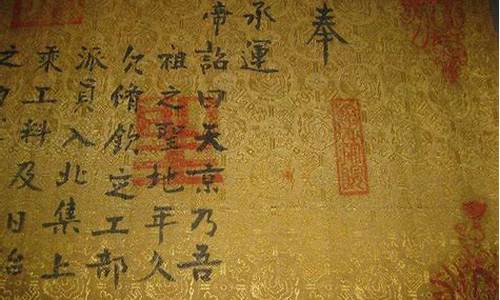 奉
承運
帝詔曰天京乃吾
祖之聖地年久
欠脩欽定工部
派員入北集上
乘工料及日
之